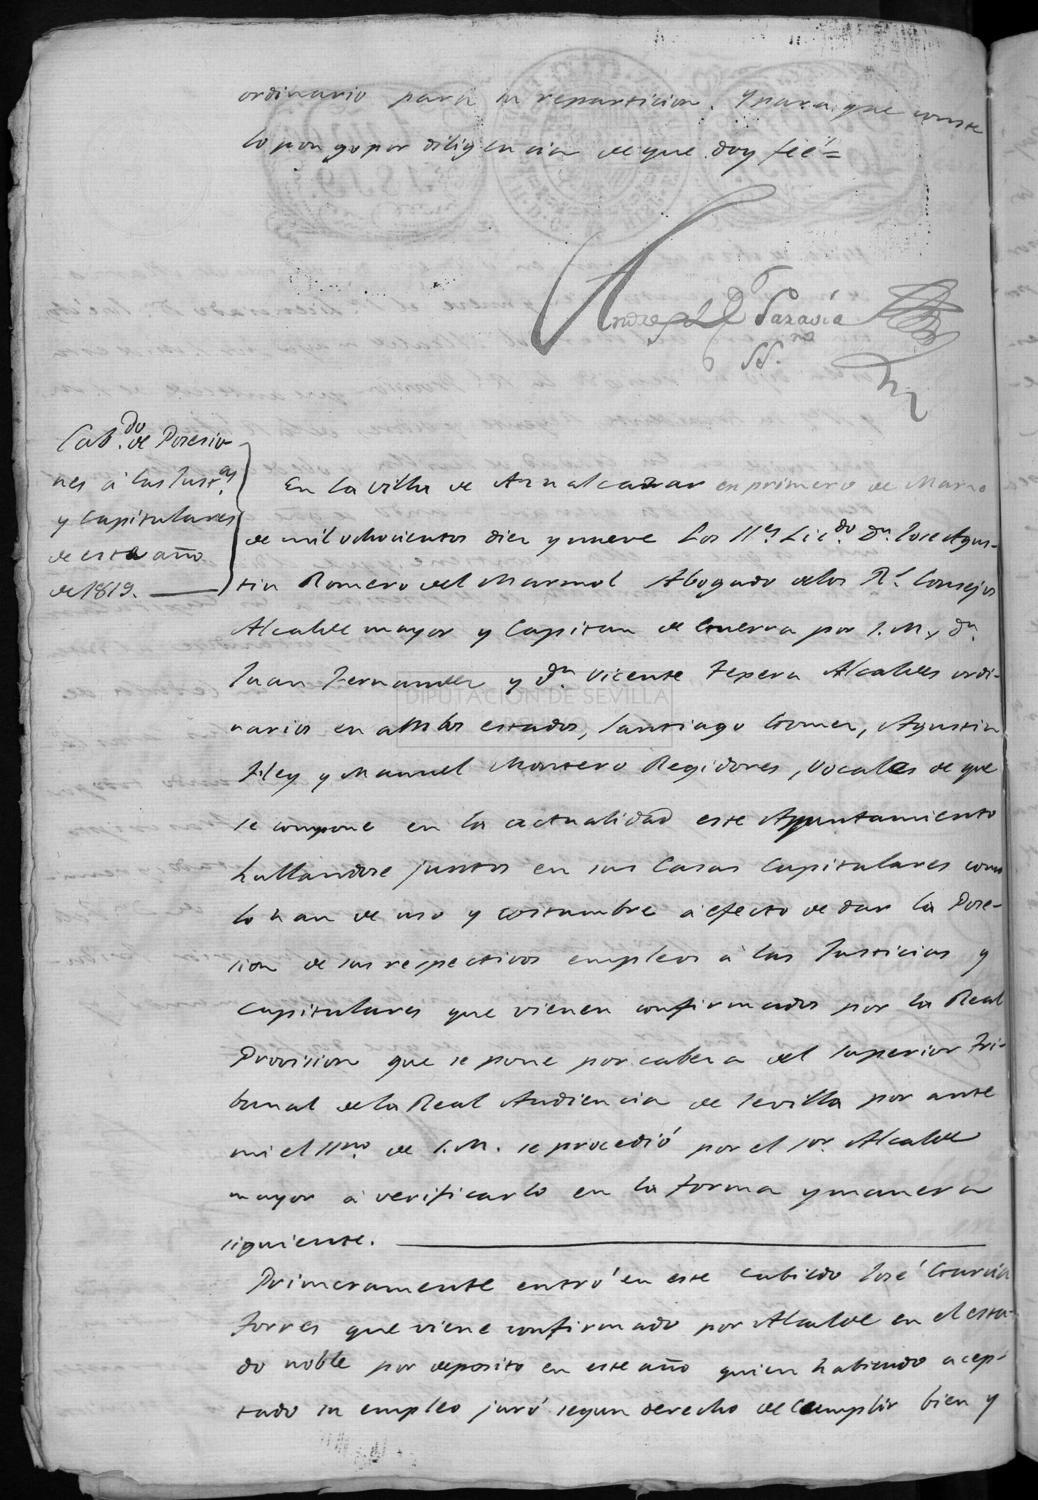 ordinario para su reparticion. Y para que conste
lo pongo por diligencia de que doy feé =
Andres Sarabia
SS.no
Cab.do de Posesio-
nes á las Just.as
y Capitulares
de este año
de 1819.
En la villa de Aznalcazar en primero de Marzo
de mil ochocientos diez y nueve los SS.es Lic.do D.n Jose Agus-
tin Romero del Marmol Abogado de los R.s Consejos
Alcalde mayor y Capitan de Guerra por S.M., D.n
Juan Fernandez y D.n Vicente Tepera Alcaldes ordi-
narios en ambos estados, Santiago Gomez, Agustin
y Manuel Montero Regidores, Vocales de que
se compone en la actualidad este Ayuntamiento
hallandose juntos en sus Casas Capitulares como
lo han de uso y costumbre á efecto de dar la Pose-
sion de sus respectivos empleos á las Justicias y
Capitulares que vienen confirmados por la Real
Provision que se pone por cabeza del Superior Tri-
bunal de la Real Audiencia de Sevilla por ante
mi el SS.no de S.M. se procedió por el Sor. Alcalde
mayor á verificarlo en la forma y manera
siguiente.
Primeramente entró en este cabildo José Garcia
Torres que viene confirmado por Alcalde en el esta-
do noble por deposito en este año quien habiendo acep-
tado su empleo juró segun derecho de cumplir bien y
DIPUTACIÓN DE SEVILLA